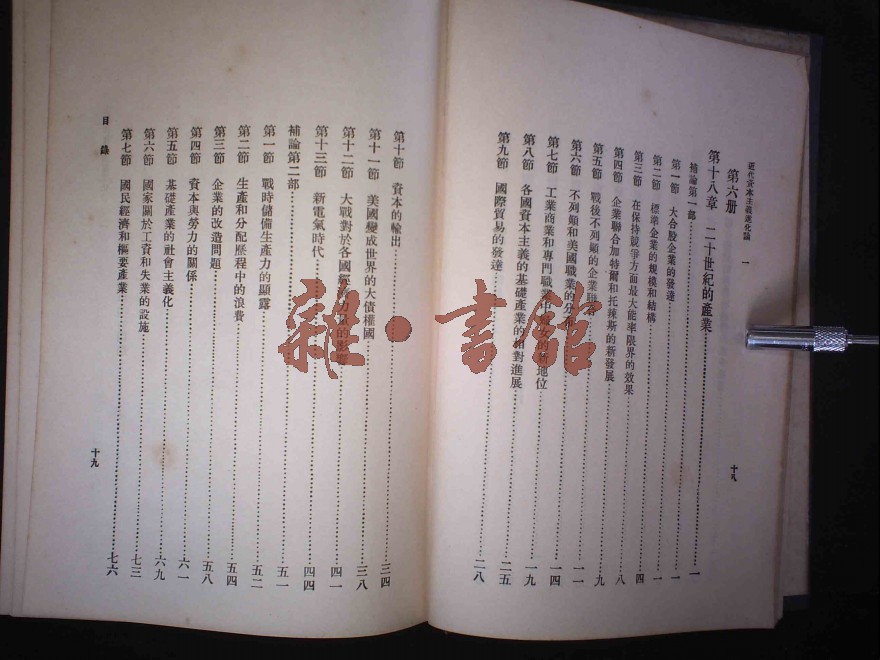 近代資本主義進化論 一
第六册
第十八章 二十世紀的產業……一
補論第一部……一
第一節 大合股企業的發達……一
第二節 標準企業的規模和結構……一
第三節 在保持競爭方面最大能率限界的效果……四
第四節 企業聯合加特爾和托辣斯的新發展……八
第五節 戰後不列顛的企業聯合……九
第六節 不列顛和美國職業的分布……一一
第七節 工業商業和專門職業中婦女的新地位……一四
第八節 各國資本主義的基礎產業的相對進展……一九
第九節 國際貿易的發達……二五
二八
十八
第十節 資本的輸出……三四
第十一節 美國變成世界的大債權國……三八
第十二節 大戰對於各國經濟力量的影響……四一
第十三節 新電氣時代……四四
補論第二部……五一
第一節 戰時儲備生產力的顯露……五二
第二節 生產和分配歷程中的浪費……五四
第三節 企業的改造問題……五八
第四節 資本與勞力的關係……六一
第五節 基礎產業的社會主義化……六九
第六節 國家關於工資和失業的設施……七三
第七節 國民經濟和樞要產業……七六
目錄
十九
雜·書館